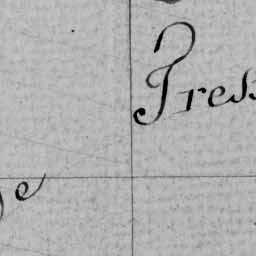 Press
e